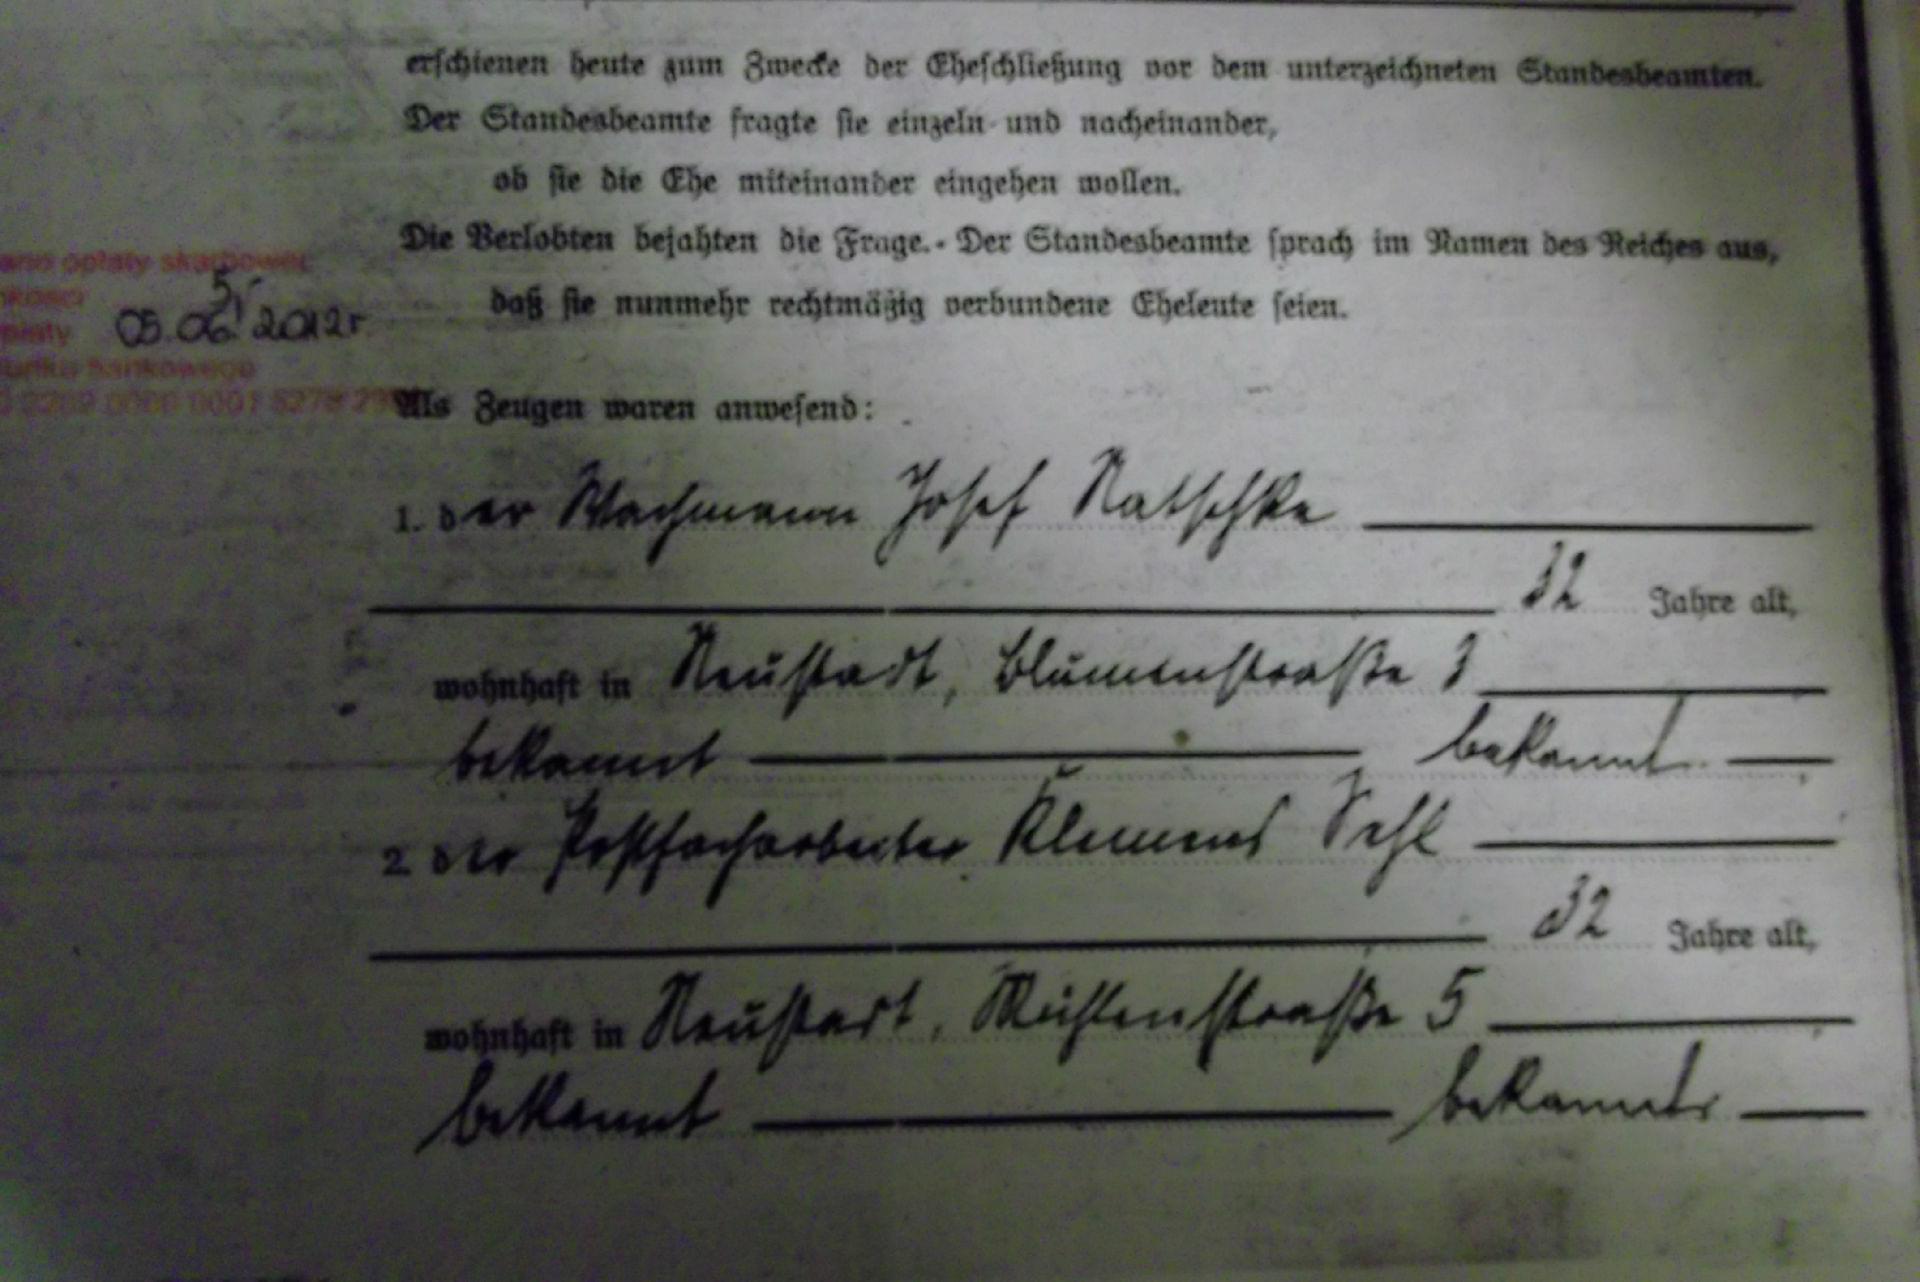 erschienen heute zum Zwecke der Eheschließung vor dem unterzeichneten Standesbeamten.
Der Standesbeamte fragte sie einzeln und nacheinander,
ob sie die Ehe miteinander eingehen wollen.
Die Verlobten bejahten die Frage. - Der Standesbeamte sprach im Namen des Reiches aus,
daß sie nunmehr rechtmäßig verbundene Eheleute seien.
opłaty skarbowej
5,-
05.06.2012r.
bankowego
0001 5278
Als Zeugen waren anwesend:
1. der Wachmann Josef Natschke
32 Jahre alt,
wohnhaft in Neustadt, Blumenstraße 3
bekannt bekannt
2 der Postfacharbeiter Klemens
32 Jahre alt,
wohnhaft in Neustadt, Mühlenstraße 5
bekannt bekannt